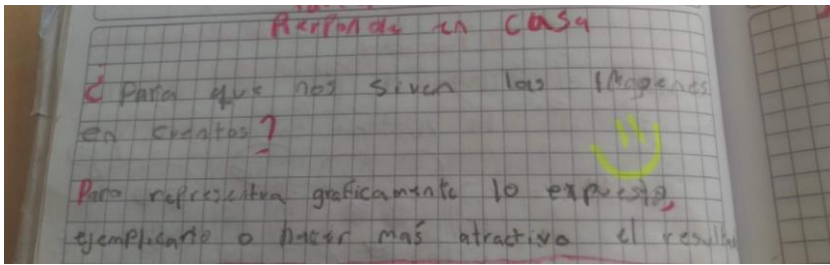 Responde en casa
¿Para que nos siven las imagenes
en cuentos?
Para represcitva graficamente lo expuesto,
ejemplicarlo o hacer más atractivo el